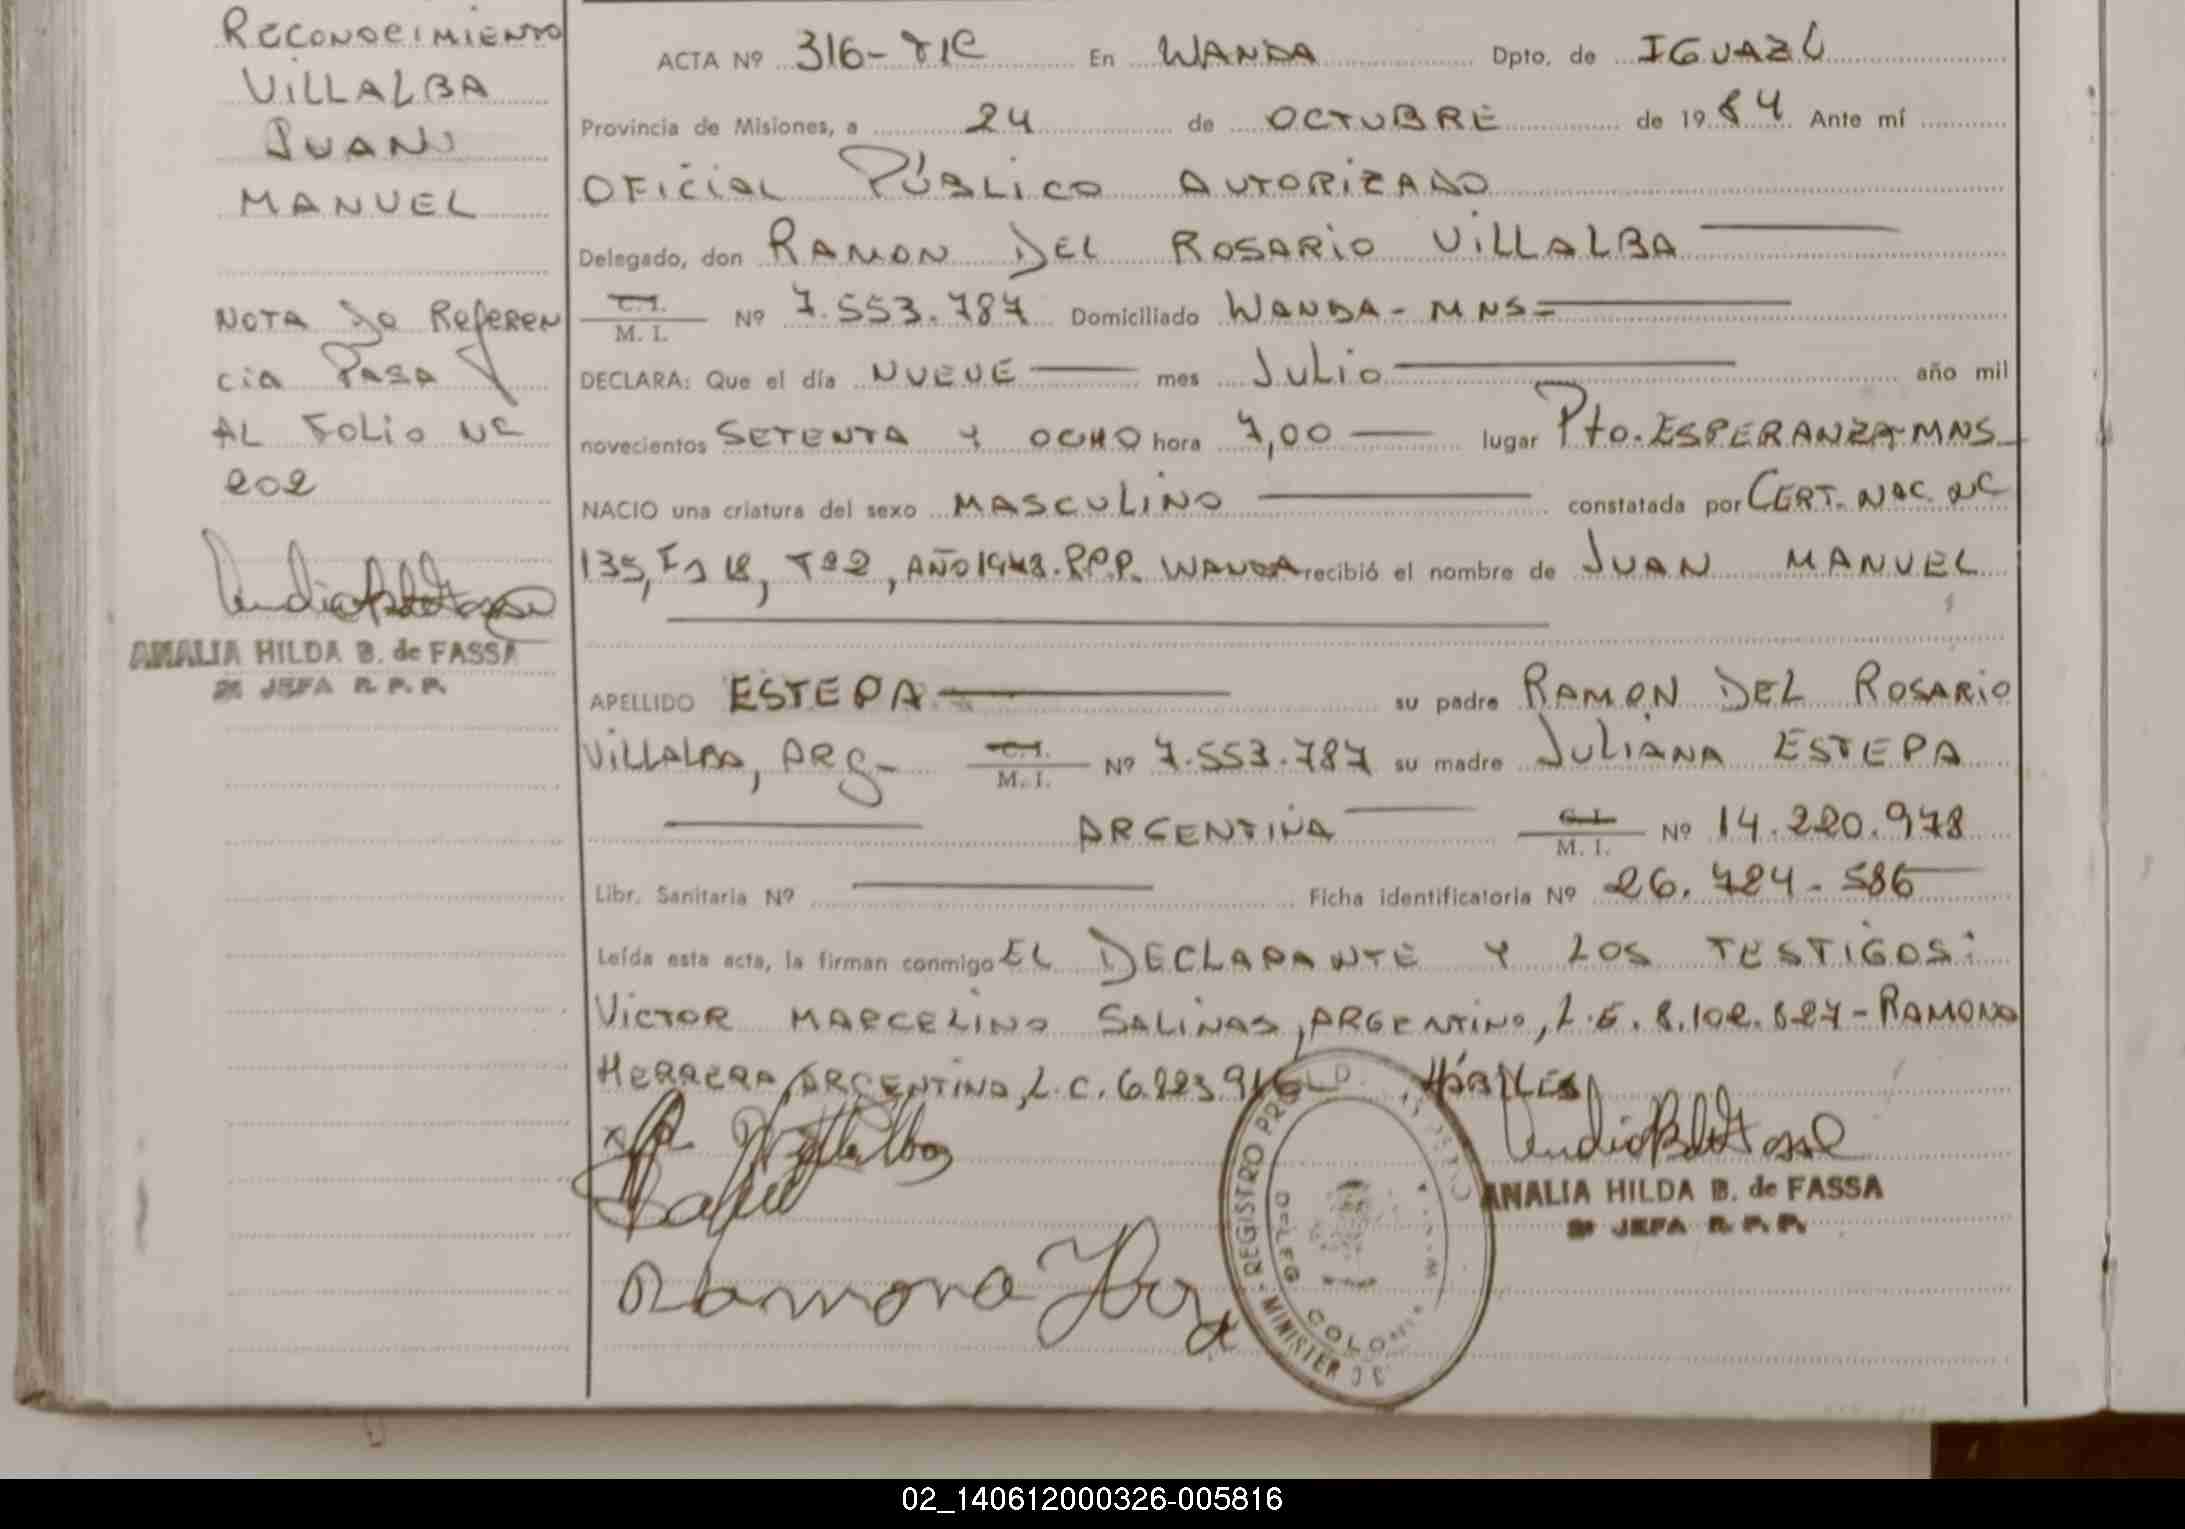 RECONOCIMIENTO
VILLALBA
JUAN
MANUEL
NOTA De Referen
cia Pasa
AL FOLIO Nº
202
AMALIA HILDA B. de FASSA
JEFA R. P. P.
ACTA Nº 316- TIC En WANDA Dpto. de IGUAZÚ
Provincia de Misiones, a 24 de OCTUBRE de 1984 Ante mí
OFICIAL PÚBLICO AUTORIZADO
Delegado, don RAMON DEL ROSARIO VILLALBA
C.I. M. I. Nº 7.553.787 Domiciliado WANDA - MNS=
DECLARA: Que el día NUEVE mes JULIO año mil
novecientos SETENTA Y OCHO hora 7,00 lugar Pto. ESPERANZA-MNS
NACIO una criatura del sexo MASCULINO constatada por CERT. NAC. Nº
135, Fº 18, Tº 2, AÑO 1978. R.P.P. WANDA recibió el nombre de JUAN MANUEL
APELLIDO ESTEPA su padre RAMON DEL ROSARIO
VILLALBA, ARG- C.I. M. I. Nº 7.553.787 su madre JULIANA ESTEPA
ARGENTINA C.I. M. I. Nº 14.220.978
Libr. Sanitaria Nº Ficha identificatoria Nº 26.724.586
Leída esta acta, la firman conmigo EL DECLARANTE Y LOS TESTIGOS:
VICTOR MARCELINO SALINAS, ARGENTINO, L.E. 8.102.827 - RAMONA
HERRERA, ARGENTINA, L.C. 6.223.916 HÁBILES
Ramona
REGISTRO MINISTER
DELEG COLO
ANALIA HILDA B. de FASSA
JEFA R. P. P.
02_140612000326-005816